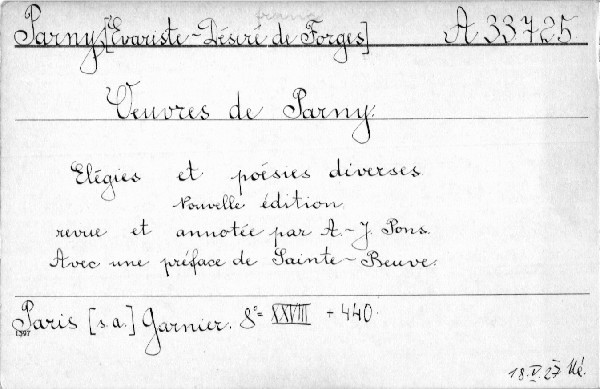 Parny, [Evariste-Désiré de Forges] A 33725.
Oeuvres de Parny.
Elégies et poésies diverses
Nouvelle édition
revue et annotée par A.-J. Pons.
Avec une préface de Sainte-Beuve.
Paris [s.a.] Garnier. 8º= XXVIII + 440.
18.V.27